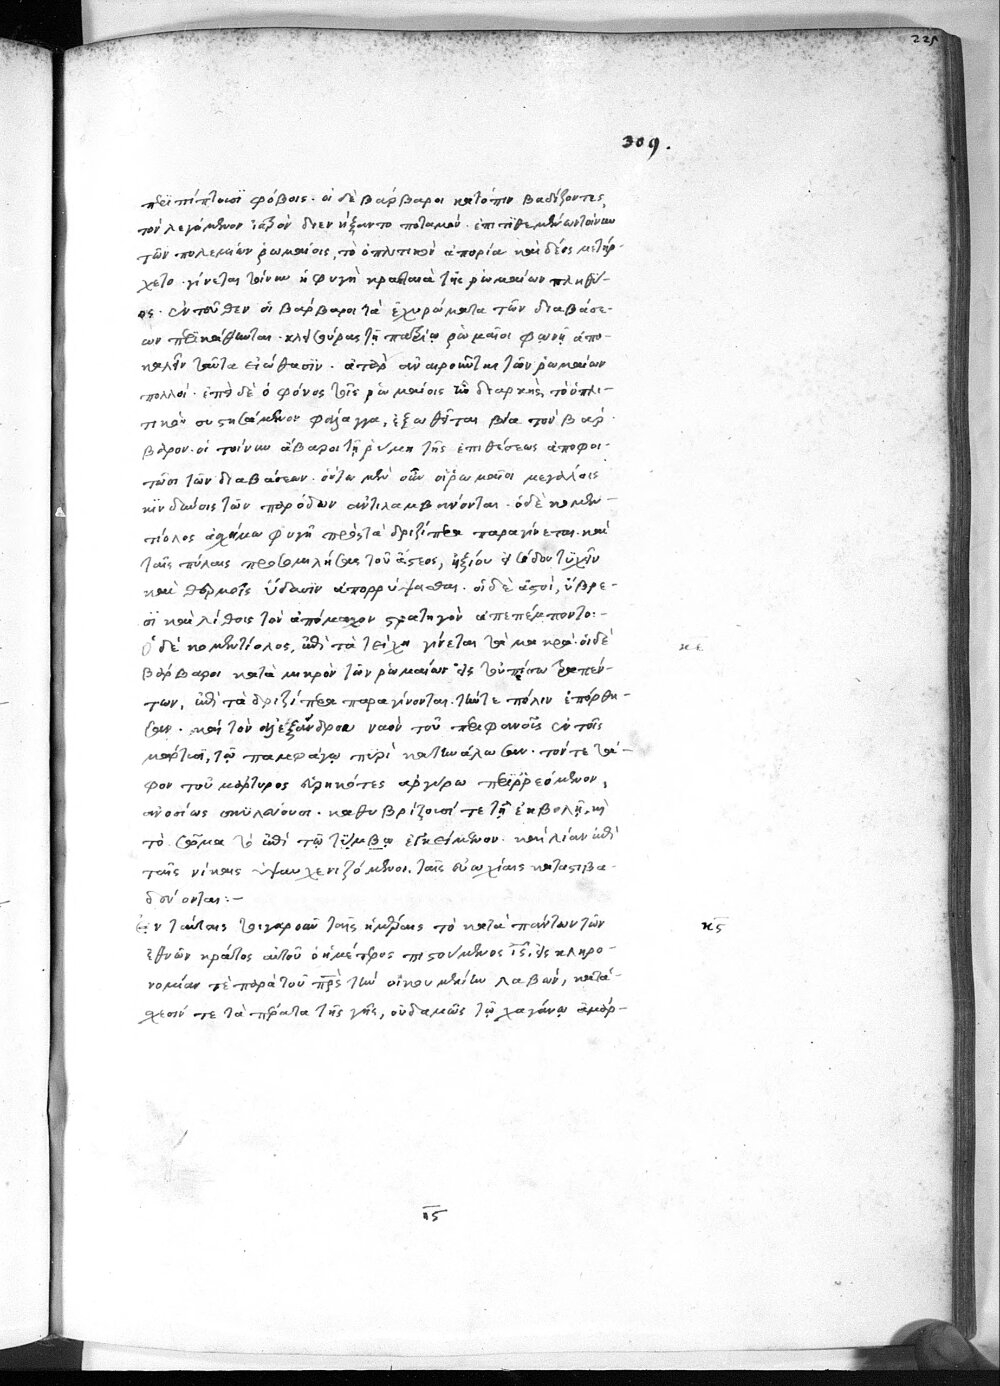 225
309.
περιπίπτουσι φόβοις· οἱ δὲ βάρβαροι κατόπιν βαδίζοντες,
τὸν λεγόμενον ἰατρὸν διενήξαντο ποταμόν· ἐπιτιθεμένων τοίνυν
τῶν πολεμίων ῥωμαίοις, τὸ ὁπλιτικὸν ἀπορία καὶ δέος μετήρ-
χετο· γίνεται τοίνυν ἡ φυγὴ κραταιὰ τῆς ῥωμαίων πληθύ-
ος· ἐντεῦθεν οἱ βάρβαροι τὰ ὀχυρώματα τῶν διαβάσε-
ων περικάθηνται· κλεισούρας τῇ πατρίῳ ῥωμαῖοι φωνῇ ἀπο-
καλεῖν ταῦτα εἰώθασιν· ἀτὰρ συναιροῦνται τῶν ῥωμαίων
πολλοί· ἐπεὶ δὲ ὁ φόνος τοῖς ῥωμαίοις ἦν διαρκής, τὸ ὁπλι-
τικὸν συστησάμενον φάλαγγα, ἐξωθεῖται βία τὸν βάρ-
βαρον· οἱ τοίνυν ἄβαροι τῇ ῥύμῃ τῆς ἐπιθέσεως ἀποφοι-
τῶσι τῶν διαβάσεων· οὕτω μὲν οὖν οἱ ῥωμαῖοι μεγάλοις
κινδύνοις τῶν παρόδων ἀντιλαμβάνονται· ὁ δὲ κομεν-
τίολος ἀσχήμω φυγῇ πρὸς τὰ δριζίπερα παραγίνεται· καὶ
ταῖς πύλαις προσομιλήσας τοῦ ἄστεος, ἠξίου εἰσόδου τυχεῖν
καὶ θερμοῖς ὕδασιν ἀπορρύψασθαι· οἱ δὲ ἀστοί, ὕβρε-
σι καὶ λίθοις τὸν ἀπόμαχον στρατηγὸν ἀπεπέμποντο:-
Ὁ δὲ κομεντίολος, ἐπὶ τὰ τείχη γίνεται τὰ μακρά· οἱ δὲ
κε
βάρβαροι κατὰ μικρὸν τῶν ῥωμαίων εἰς τοὐπίσω τραπέν-
των, ἐπὶ τὰ δριζίπερα παραγίνονται· τήν τε πόλιν ἐπόρθη-
σαν· καὶ τὸν ἀλεξάνδρου ναὸν τοῦ περιφανοῦς ἐν τοῖς
μάρτυσι, τῷ παμφάγῳ πυρὶ κατηνάλωσαν· τόν τε τά-
φον τοῦ μάρτυρος εὑρηκότες ἀργύρω περιρρεόμενον,
ἀνοσίως σκυλεύουσι· καθυβρίζουσί τε τῇ ἐκβολῇ, κ
τὸ σῶμα τὸ ἐπὶ τῷ τύμβῳ ἐγκείμενον· καὶ λίαν ἐπὶ
ταῖς νίκαις ὑψαυχενιζόμενοι, ταῖς εὐωχίαις κατασοβα-
δεύονται:-
Ἐν ταύταις τοιγαροῦν ταῖς ἡμέραις τὸ κατὰ πάντων τῶν
κϛ
ἐθνῶν κράτος αὐτοῦ ὁ ἡμέτερος πιστούμενος ις, εἰς κληρο-
νομίαν τὲ παρὰ τοῦ πρς τὴν οἰκουμένην λαβών, κατά-
σχεσίν τε τὰ πέρατα τῆς γῆς, οὐδαμῶς τῷ χαγάνῳ ἀμάρ-
ιϛ